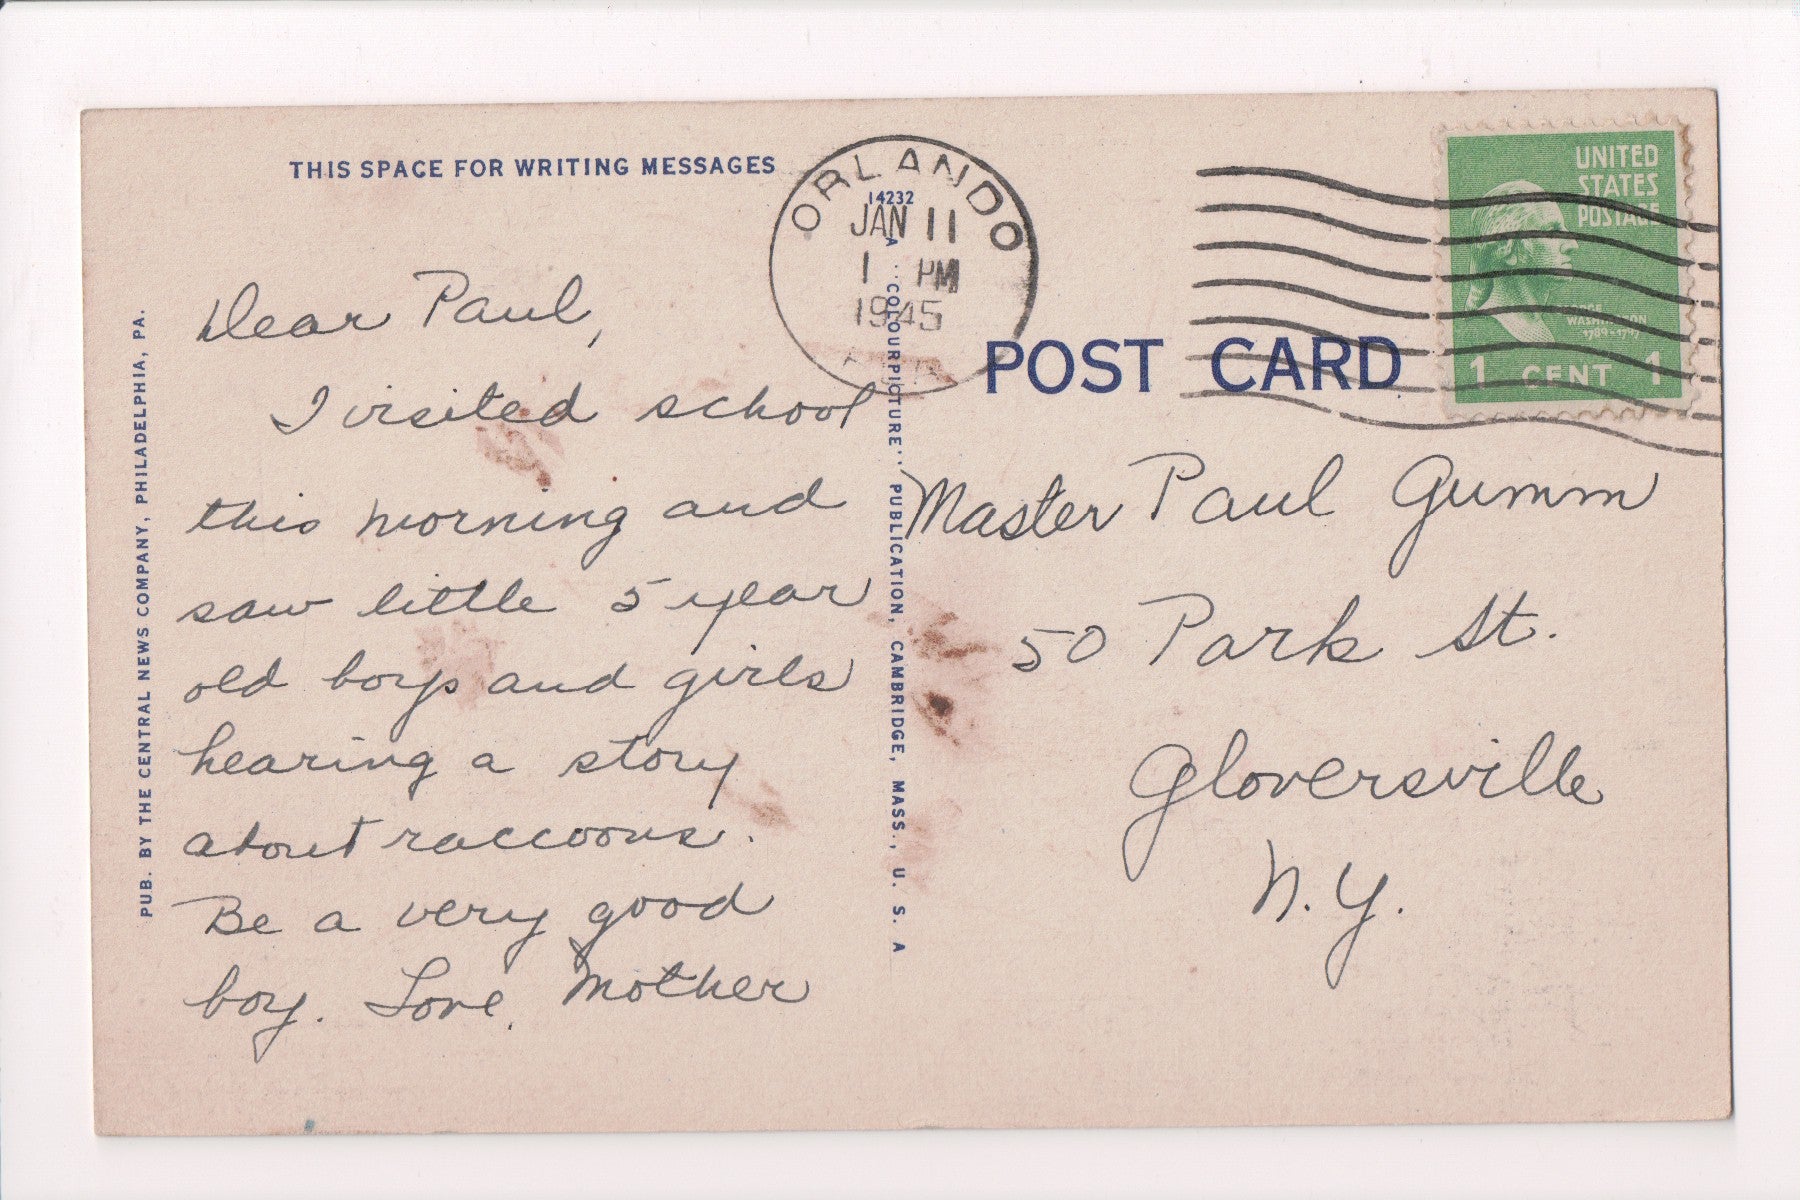 THIS SPACE FOR WRITING MESSAGES
Dear Paul,
I visited school
this morning and
saw little 5 year
old boys and girls
hearing a story
about raccoons.
Be a very good
boy. Love, Mother
PUB. BY THE CENTRAL NEWS COMPANY, PHILADELPHIA, PA.
14232
A "COLOURPICTURE" PUBLICATION, CAMBRIDGE, MASS., U. S. A
ORLANDO
JAN 11
1 PM
1945
POST CARD
UNITED
STATES
POSTAGE
GEORGE
WASHINGTON
1789-1797
1 CENT 1
Master Paul Gumm
50 Park St.
Gloversville
N.Y.